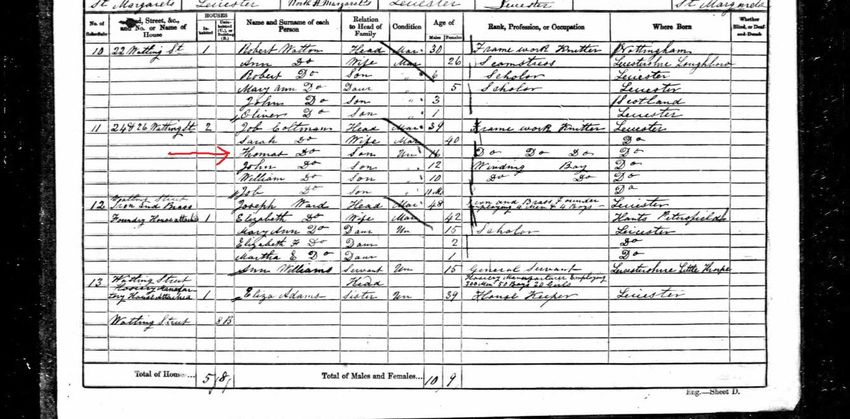 St. Margarets Leicester North St. Margarets Leicester Leicester St. Margarets
No. of Schedule Street, &c., and No. or Name of House HOUSES Inhabited Uninhabited (U.), or Building (B.) Name and Surname of each Person Relation to Head of Family Condition Age of Males Females Rank, Profession, or Occupation Where Born Whether Blind, or Deaf-and-Dumb
10 22 Watling St 1 Robert Watton Head Mar 30 Frame work Knitter Nottingham
Ann Do Wife Mar 26 Seamstress Leicestershire Loughboro
Robert Do Son 6 Scholar Leicester
Mary Ann Do Daur 5 Scholar Leicester
John Do Son 3 Scotland
Oliver Do Son 1 Leicester
11 24 & 26 Watling St 2 Job Coltman Head Mar 39 Frame work Knitter Leicester
Sarah Do Wife Mar 40 Do
Thomas Do Son Un 16 Do Do Do Do
John Do Son 12 Winding Boy Do
William Do Son 10 Do Do Do
Job Do Son Do
12 Street Iron and Brass Joseph Ward Head Mar 48 Iron and Brass Founder Employing Men & 4 Boys Leicester
Foundry House attached 1 Elizabeth Do Wife Mar 42 Hants Petersfield
Mary Ann Do Daur Un 15 Scholar Leicester
Elizabeth F Do Daur 2 Do
Martha E Do Daur 1 Do
Ann Williams Servant Un 15 General Servant Leicestershire Little
13 Watling Street Hosiery House attached 1 Head Hosiery Manufacturer Employing Men 50 Boys 20 Girls
Eliza Adams Sister Un 39 House Keeper Leicester
Watling Street 8B
Total of Houses 5 8 Total of Males and Females 10 9
Eng.—Sheet D.